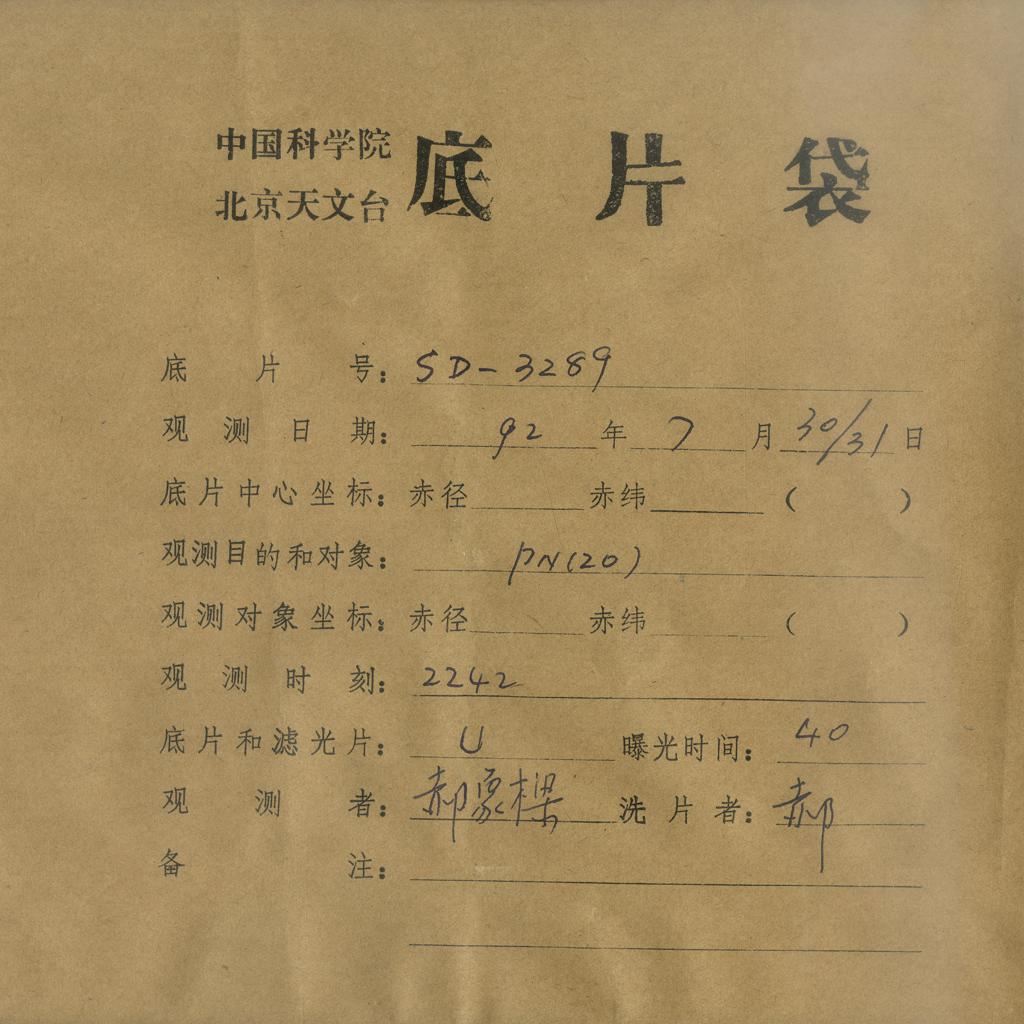 中国科学院
北京天文台 底片袋
底片号：SD-3289
观测日期：92年7月30/31日
底片中心坐标：赤径 赤纬 ( )
观测目的和对象：PN(20)
观测对象坐标：赤径 赤纬 ( )
观测时刻：2242
底片和滤光片：U 曝光时间：40
观测者：郝象樑 洗片者：郝
备注：